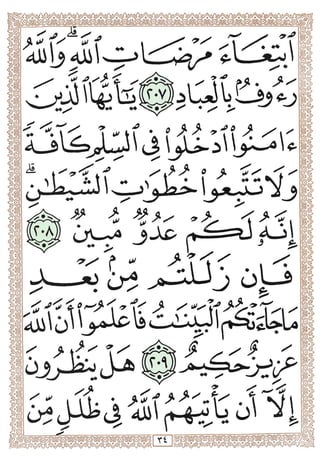 ٱبۡتِغَآءَ مَرۡضَاتِ ٱللَّهِۗ وَٱللَّهُ
رَءُوفُۢ بِٱلۡعِبَادِ ٢٠٧ يَٰٓأَيُّهَا ٱلَّذِينَ
ءَامَنُواْ ٱدۡخُلُواْ فِي ٱلسِّلۡمِ كَآفَّةٗ
وَلَا تَتَّبِعُواْ خُطُوَٰتِ ٱلشَّيۡطَٰنِۚ
إِنَّهُۥ لَكُمۡ عَدُوّٞ مُّبِينٞ ٢٠٨
فَإِن زَلَلۡتُم مِّنۢ بَعۡدِ
مَا جَآءَتۡكُمُ ٱلۡبَيِّنَٰتُ فَٱعۡلَمُوٓاْ أَنَّ ٱللَّهَ
عَزِيزٌ حَكِيمٌ ٢٠٩ هَلۡ يَنظُرُونَ
إِلَّآ أَن يَأۡتِيَهُمُ ٱللَّهُ فِي ظُلَلٖ مِّنَ
٣٤